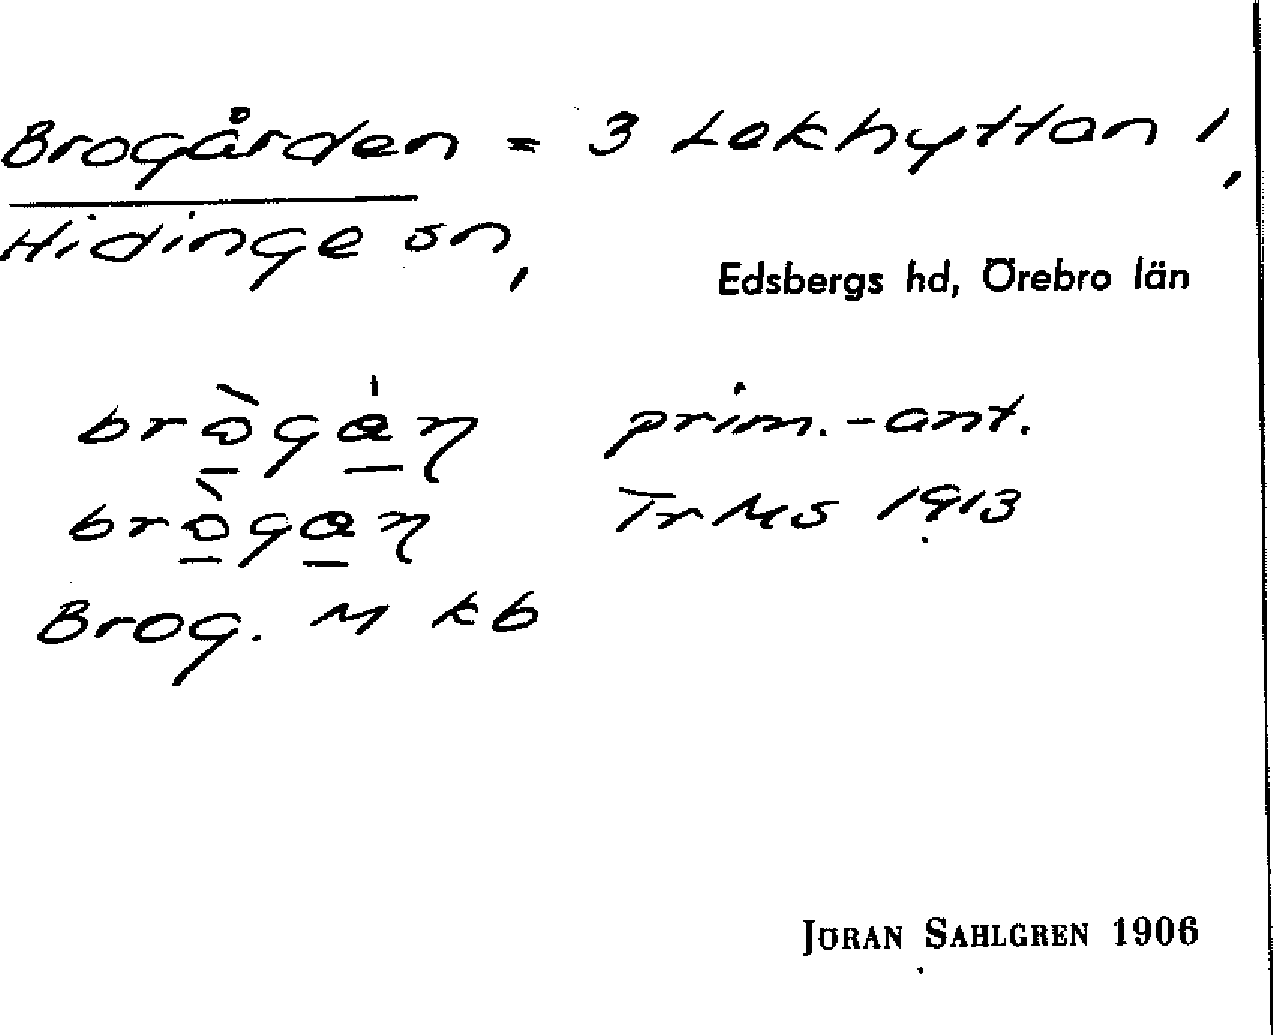 Brogården = 3 Lekhyttan 1,
Hidinge sn,
Edsbergs hd, Örebro län
prim.-ant.
TrMs 1913
Brog. M kb
JÖRAN SAHLGREN 1906